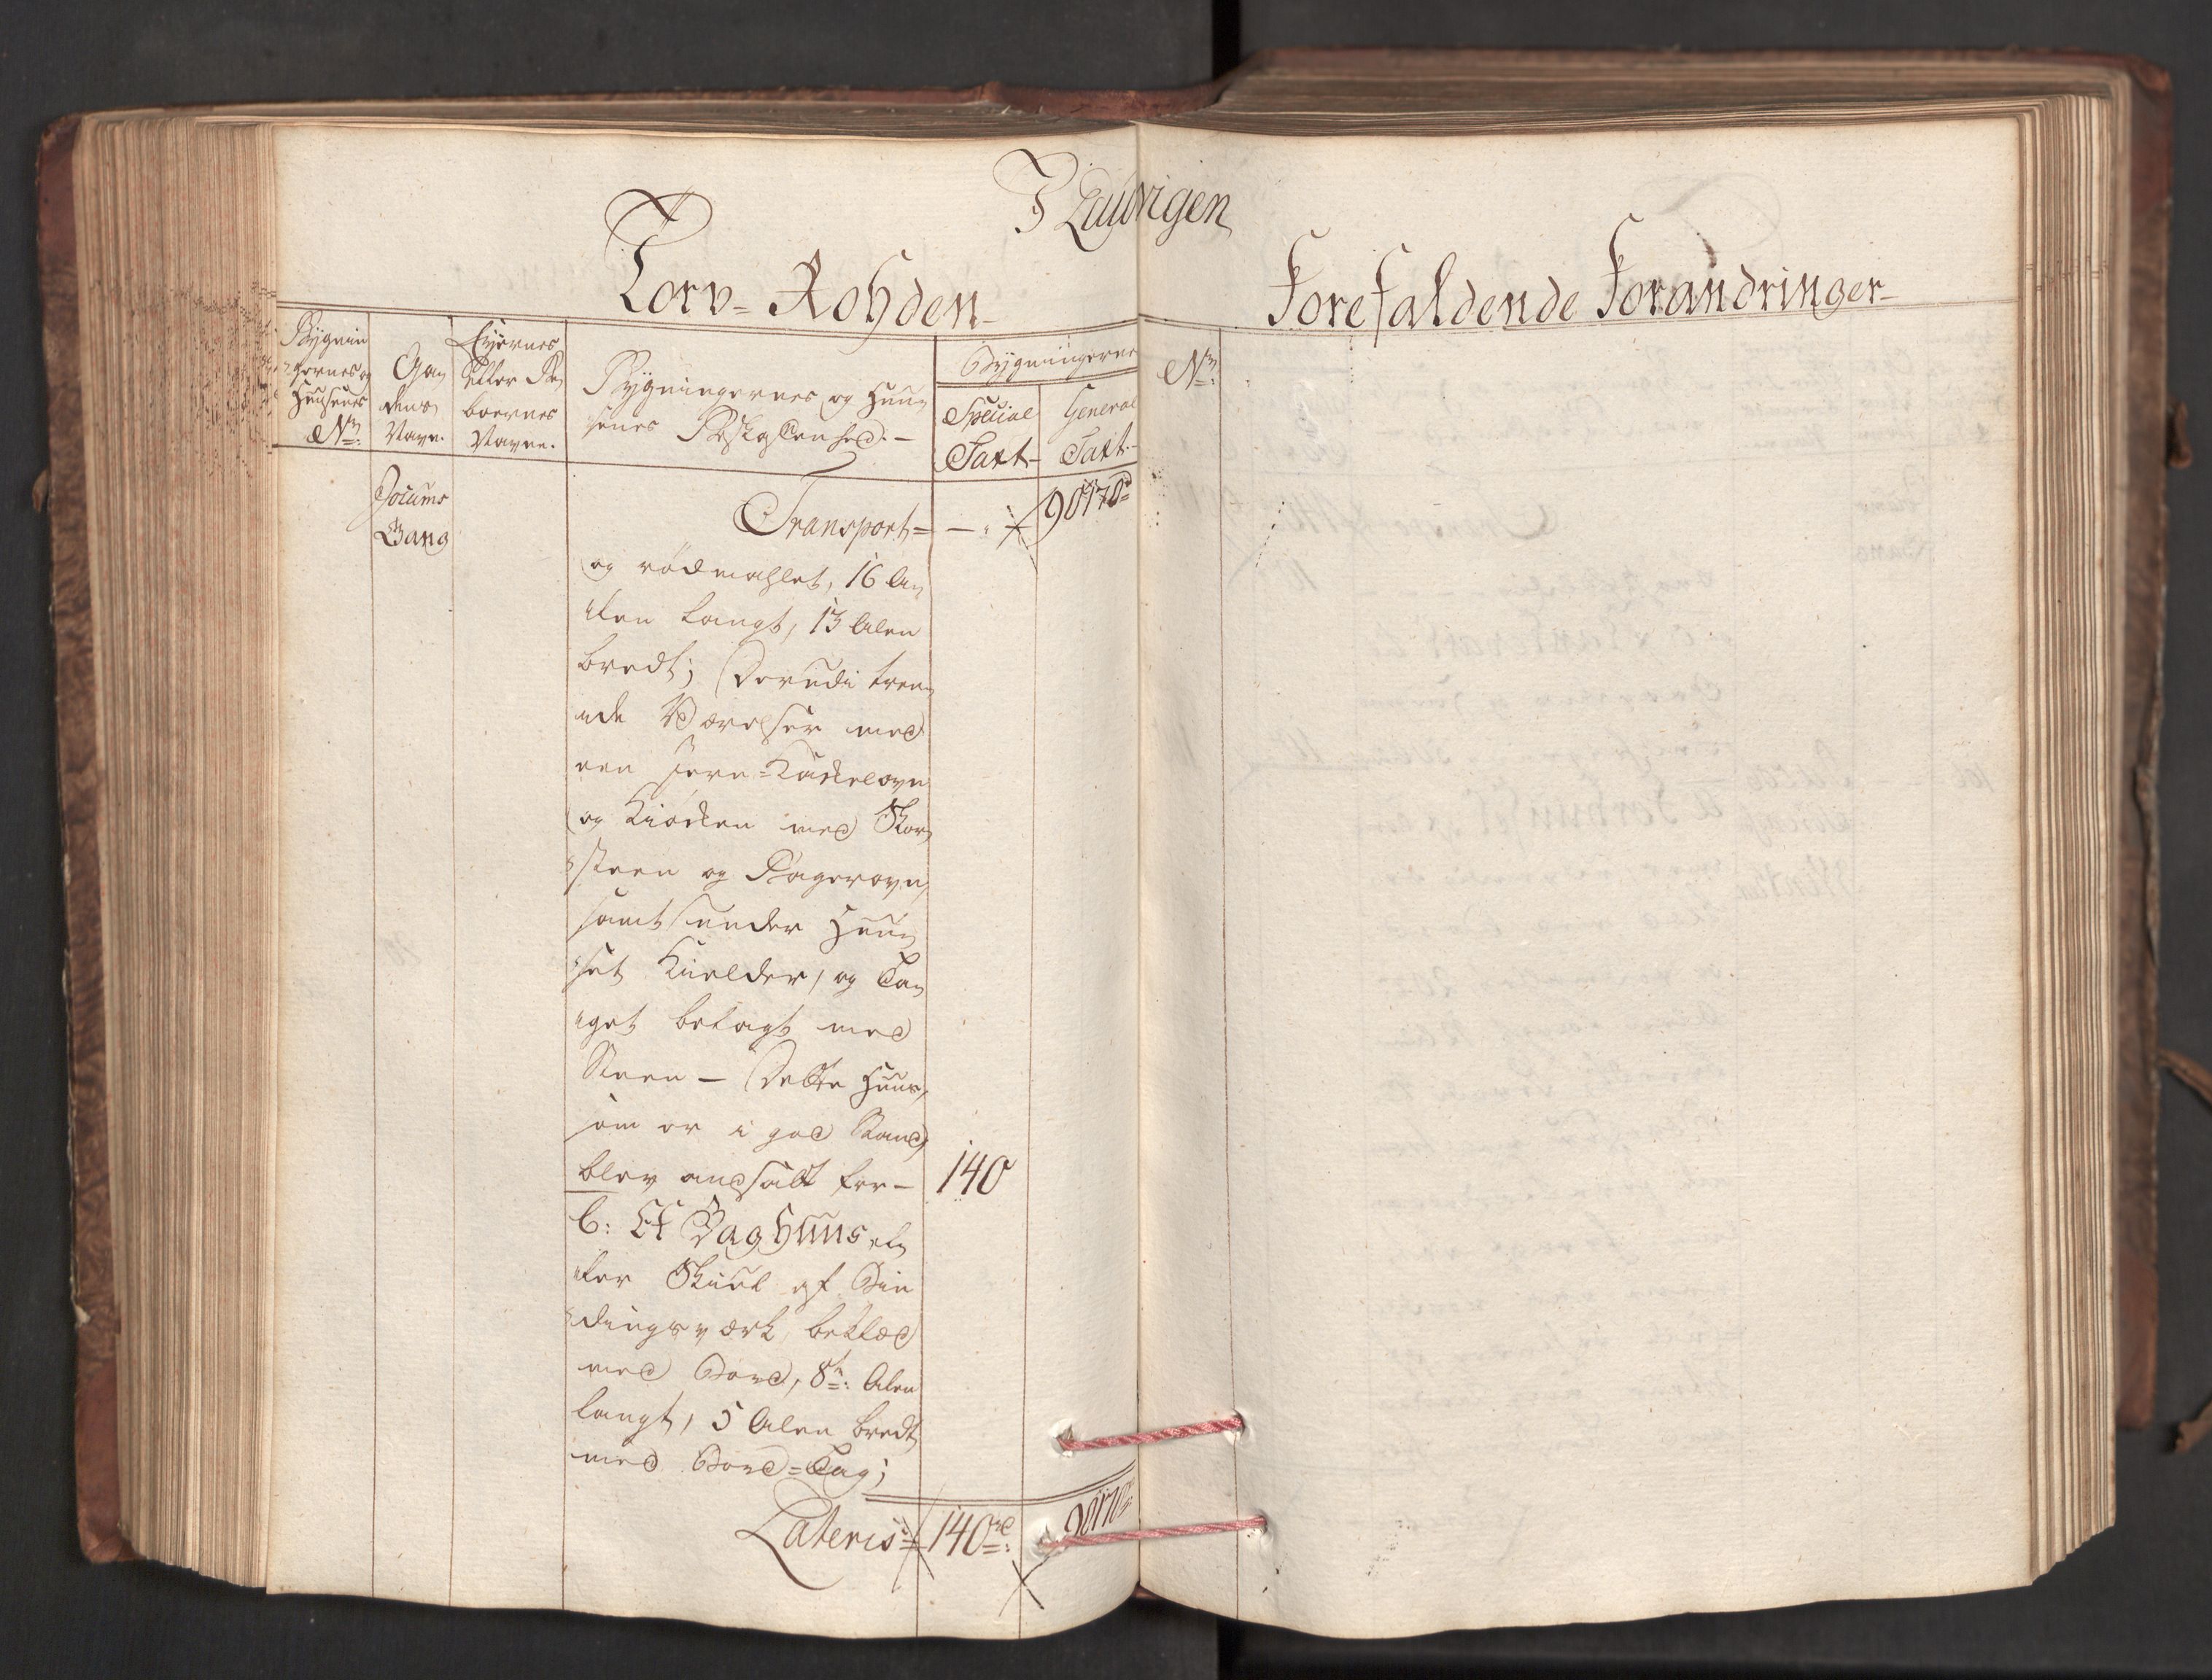 I Laurvigen
Torv-Rohden
Forefaldende Forandringer
Bygnin
gernes og
Huusenes
No:
Ga
dens
Navn.
Eyernes
eller Be
boernes
Navne.
Bygningernes og Huu
senes Beskaffenhed.
Bygningerne
Special
Taxt
General
Taxt
No:
Jocums
Gang
Transport= 90170rd
og rödmahlet, 16 Al
len langt, 13 Alen
bredt; Derudi tven
nde Værelser med
een Jern-Kackelovn
og Kiöcken med Skor
steen og Bagerovn,
samt under Huu
set Kielder, og Ta
get belagt med
Steen – Dette Huus,
som er i god Stand
blev ansadt for – 140
b: Et Baghuus el
ler Skiul af Bin
dingsværk, beklæd
med Bord, 8te: Alen
langt, 5 Alen bredt
med Bord=Tag;
Lateris 140rd: 90170rd